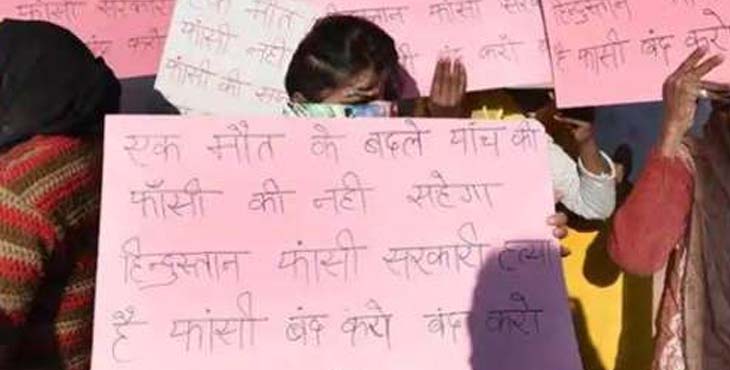 फांसी सरकारी
बंद करो
एक मौत
फांसी नही
फांसी की
फांसी
बंद करो
हिन्दुस्तान
है फांसी बंद करो
एक मौत के बदले पांच की
फाँसी की नही सहेगा
हिन्दुस्तान फांसी सरकारी हत्या
है फांसी बंद करो बंद करो